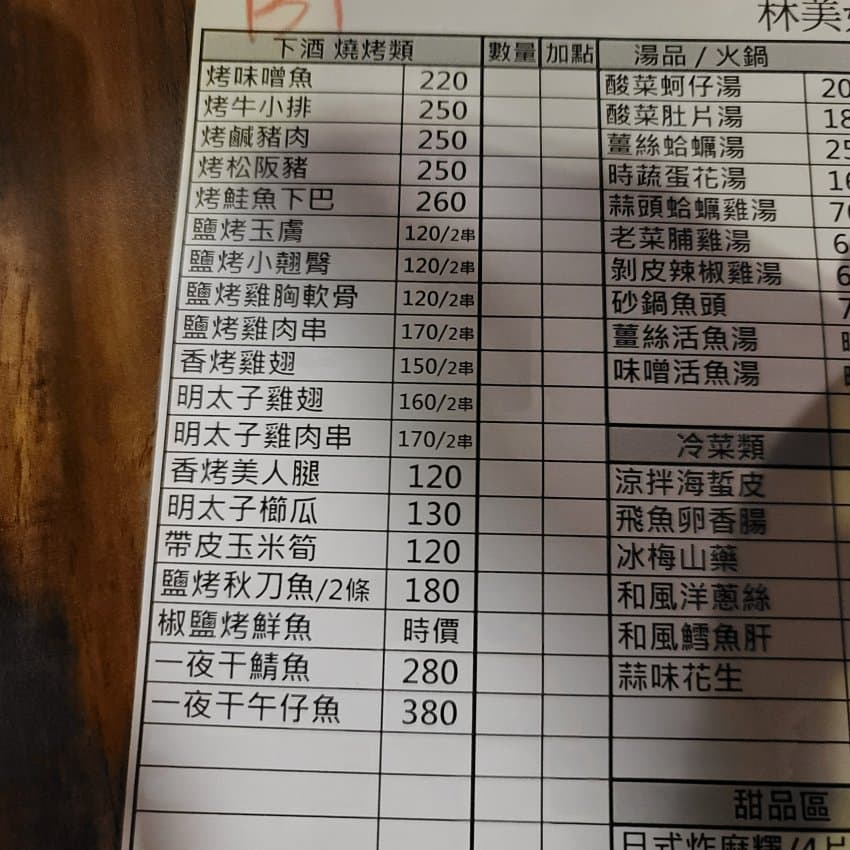 林美
下酒 燒烤類 數量 加點
烤味噌魚 220
烤牛小排 250
烤鹹豬肉 250
烤松阪豬 250
烤鮭魚下巴 260
鹽烤玉膚 120/2串
鹽烤小翹臀 120/2串
鹽烤雞胸軟骨 120/2串
鹽烤雞肉串 170/2串
香烤雞翅 150/2串
明太子雞翅 160/2串
明太子雞肉串 170/2串
香烤美人腿 120
明太子櫛瓜 130
帶皮玉米筍 120
鹽烤秋刀魚/2條 180
椒鹽烤鮮魚 時價
一夜干鯖魚 280
一夜干午仔魚 380
湯品 / 火鍋
酸菜蚵仔湯
酸菜肚片湯
薑絲蛤蠣湯
時蔬蛋花湯
蒜頭蛤蠣雞湯
老菜脯雞湯
剝皮辣椒雞湯
砂鍋魚頭
薑絲活魚湯
味噌活魚湯
冷菜類
涼拌海蜇皮
飛魚卵香腸
冰梅山藥
和風洋蔥絲
和風鱈魚肝
蒜味花生
甜品區
日式炸麻糬/4片